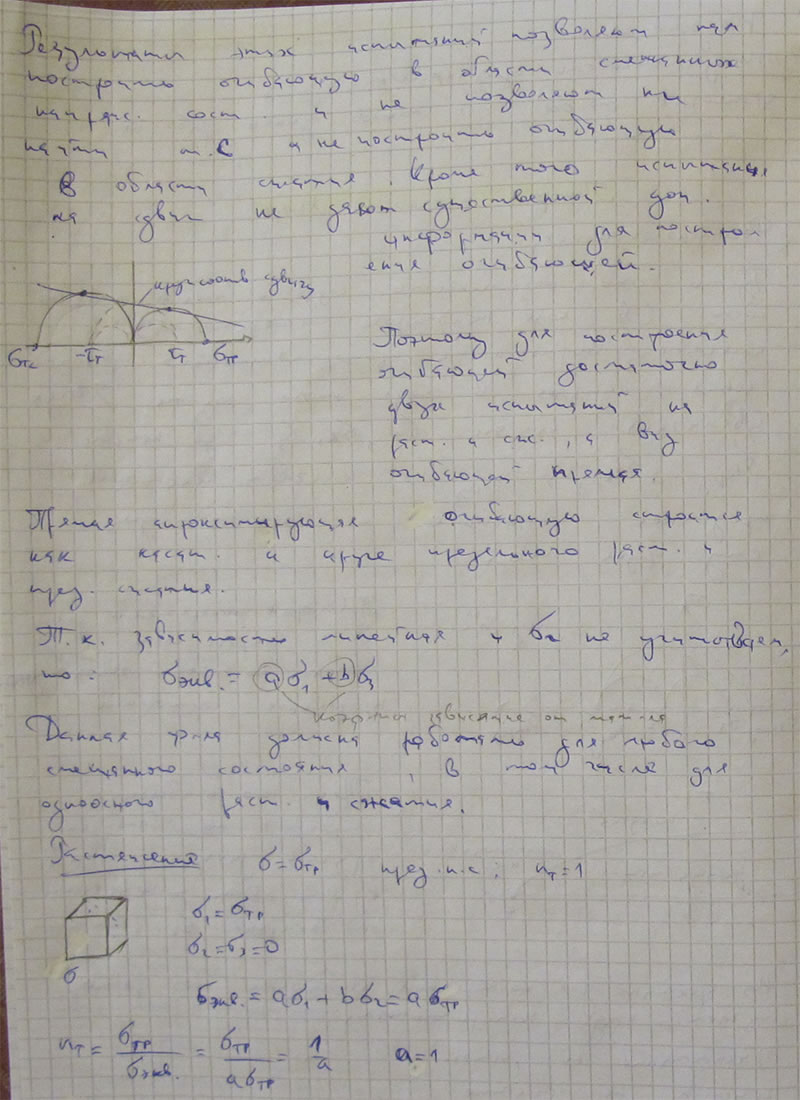 Результаты этих испытаний позволяют нам
построить огибающую в области смешанных
напряс. сост. и не позволяют ни
найти т.С и не построить огибающую
в области сжатия. Кроме того испытания
на сдвиг не дают существенной доп.
информации для постро
ения огибающей.
круг соотв сдвигу
σтс -τт τт σтр
Поэтому для построения
огибающей достаточно
двух испытаний на
раст. и сж., а вид
огибающей прямая.
Прямая апроксимирующая огибающую строится
как касат. к круге предельного раст. и
пред. сжатия.
Т.к. зависимость линейная и σ2 не учитываем,
то: σэкв. = aσ1 + bσ3
коэф-ты зависящие от мат-ла
Данная ф-ла должна работать для любого
смешанного состояния, в том числе для
одноосного раст. и сжатия.
Растяжение σ = σтр пред.н.с; nт=1
σ1 = σтр
σ2 = σ3 = 0
σ
σэкв. = aσ1 + bσ2 = aσтр
nт = σтр/σэкв. = σтр/aσтр = 1/a a=1